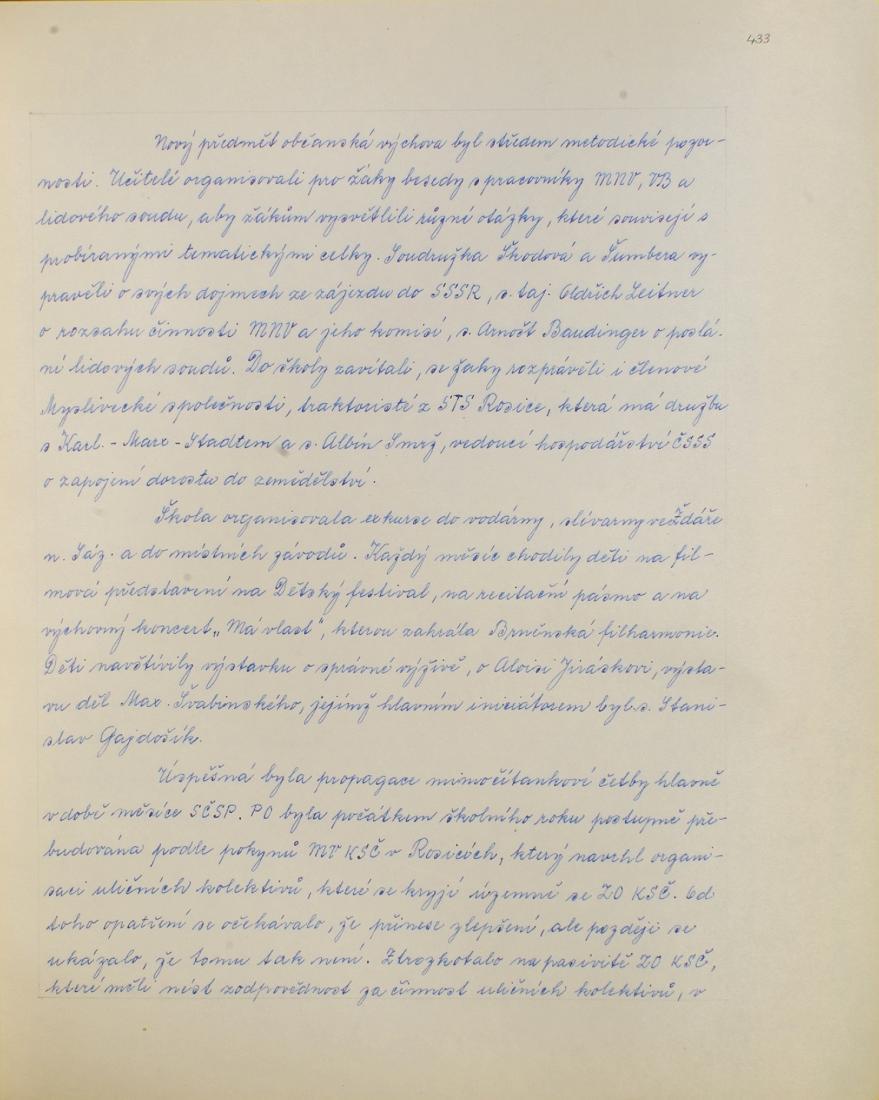 433
Nový předmět občanská výchova byl středem metodické pozor-
nosti. Učitelé organisovali pro žáky besedy s pracovníky MNV, VB a
lidového soudu, aby žákům vysvětlili různé otázky, které souvisejí s
probíranými tematickými celky. Soudružka Škodová a Šumbera vy-
pravěli o svých dojmech ze zájezdu do SSSR, s. taj. Oldřich Leitner
o rozsahu činnosti MNV a jeho komisí, s. Arnošt Baudinger o poslá-
ní lidových soudů. Do školy zavítali, se žaky rozprávěli i členové
Myslivecké společnosti, traktoristé z STS Rosice, která má družbu
s Karl. - Marx - Stadtem a s. Albín Smrž, vedoucí hospodářství ČSSS
o zapojení dorostu do zemědělství.
Škola organisovala exkurse do vodárny, slívarny ve Ždáře
n. Sáz. a do místních závodů. Každý měsíc chodily děti na fil-
mová představení na Dětský festival, na recitační pásmo a na
výchovný koncert „Má vlast", kterou zahrála Brněnská filharmonie.
Děti navštívily výstavku o správné výživě, o Aloisi Jiráskovi, výsta-
vu děl Max. Švabinského, jejímž hlavním iniciátorem byl s. Stani-
slav Gajdošík.
Úspěšná byla propagace mimočítankové četby hlavně
v době měsíce SČSP. PO byla počátkem školního roku postupně pře-
budována podle pokynů MV KSČ v Rosicích, který navrhl organi-
saci uličních kolektivů, které se kryjí územně se ZO KSČ. Od
toho opatření se očekávalo, že přinese zlepšení, ale později se
ukázalo, že tomu tak není. Ztrozkotalo na pasivitě ZO KSČ,
které měli nést zodpovědnost za činnost uličních kolektivů, v